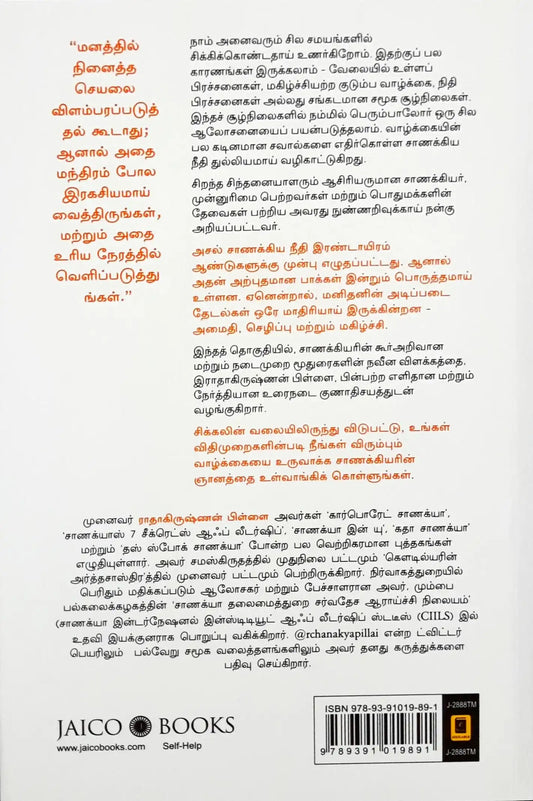 “மனத்தில்
நினைத்த
செயலை
விளம்பரப்படுத்
தல் கூடாது;
ஆனால் அதை
மந்திரம் போல
இரகசியமாய்
வைத்திருங்கள்,
மற்றும் அதை
உரிய நேரத்தில்
வெளிப்படுத்து
ங்கள்.”
நாம் அனைவரும் சில சமயங்களில்
சிக்கிக்கொண்டதாய் உணர்கிறோம். இதற்குப் பல
காரணங்கள் இருக்கலாம் - வேலையில் உள்ளப்
பிரச்சனைகள், மகிழ்ச்சியற்ற குடும்ப வாழ்க்கை, நிதி
பிரச்சனைகள் அல்லது சங்கடமான சமூக சூழ்நிலைகள்.
இந்தச் சூழ்நிலைகளில் நம்மில் பெரும்பாலோர் ஒரு சில
ஆலோசனையைப் பயன்படுத்தலாம். வாழ்க்கையின்
பல கடினமான சவால்களை எதிர்கொள்ள சாணக்கிய
நீதி துல்லியமாய் வழிகாட்டுகிறது.
சிறந்த சிந்தனையாளரும் ஆசிரியருமான சாணக்கியர்,
முன்னுரிமை பெற்றவர்கள் மற்றும் பொதுமக்களின்
தேவைகள் பற்றிய அவரது நுண்ணறிவுக்காய் நன்கு
அறியப்பட்டவர்.
அசல் சாணக்கிய நீதி இரண்டாயிரம்
ஆண்டுகளுக்கு முன்பு எழுதப்பட்டது. ஆனால்
அதன் அற்புதமான பாக்கள் இன்றும் பொருத்தமாய்
உள்ளன. ஏனென்றால், மனிதனின் அடிப்படை
தேடல்கள் ஒரே மாதிரியாய் இருக்கின்றன -
அமைதி, செழிப்பு மற்றும் மகிழ்ச்சி.
இந்தத் தொகுதியில், சாணக்கியரின் கூர்அறிவான
மற்றும் நடைமுறை மூதுரைகளின் நவீன விளக்கத்தை,
இராதாகிருஷ்ணன் பிள்ளை, பின்பற்ற எளிதான மற்றும்
நேர்த்தியான உரைநடை குணாதிசயத்துடன்
வழங்குகிறார்.
சிக்கலின் வலையிலிருந்து விடுபட்டு, உங்கள்
விதிமுறைகளின்படி நீங்கள் விரும்பும்
வாழ்க்கையை உருவாக்க சாணக்கியரின்
ஞானத்தை உள்வாங்கிக் கொள்ளுங்கள்.
முனைவர் ராதாகிருஷ்ணன் பிள்ளை அவர்கள் ‘கார்பொரேட் சாணக்யா’,
‘சாணக்யாஸ் 7 சீக்ரெட்ஸ் ஆஃப் லீடர்ஷிப்’, ‘சாணக்யா இன் யு’, ‘கதா சாணக்யா’
மற்றும் ‘தஸ் ஸ்போக் சாணக்யா’ போன்ற பல வெற்றிகரமான புத்தகங்கள்
எழுதியுள்ளார். அவர் சமஸ்கிருதத்தில் முதுநிலை பட்டமும் ‘கௌடில்யரின்
அர்த்தசாஸ்திர’த்தில் முனைவர் பட்டமும் பெற்றிருக்கிறார். நிர்வாகத்துறையில்
பெரிதும் மதிக்கப்படும் ஆலோசகர் மற்றும் பேச்சாளரான அவர், மும்பை
பல்கலைக்கழகத்தின் ‘சாணக்யா தலைமைத்துறை சர்வதேச ஆராய்ச்சி நிலையம்’
(சாணக்யா இன்டர்நேஷனல் இன்ஸ்டிடியூட் ஆஃப் லீடர்ஷிப் ஸ்டடீஸ் (CIILS) இல்
உதவி இயக்குனராக பொறுப்பு வகிக்கிறார். @rchanakyapillai என்ற ட்விட்டர்
பெயரிலும் பல்வேறு சமூக வலைத்தளங்களிலும் அவர் தனது கருத்துக்களை
பதிவு செய்கிறார்.
JAICO BOOKS
www.jaicobooks.com Self-Help
ISBN 978-93-91019-89-1
9 789391 019891
J-2888TM
J-2888TM